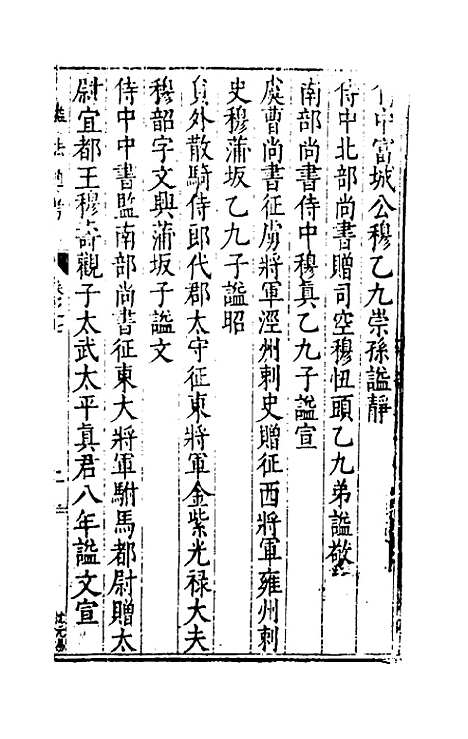 中富城公穆乙九崇孫謚靜
侍中北部尚書贈司空穆忸頭乙九弟謚敬
南部尚書侍中穆眞乙九子謚宣
虞曹尚書征虜將軍涇州刺史贈征西將軍雍州刺
史穆蒲坂乙九子謚昭
員外散騎侍郎代郡太守征東將軍金紫光祿大夫
穆韶字文與蒲坂子謚文
侍中中書監南部尚書征東大將軍駙馬都尉贈太
尉宜都王穆壽觀子太武太平真君八年謚文宣
謚法通考